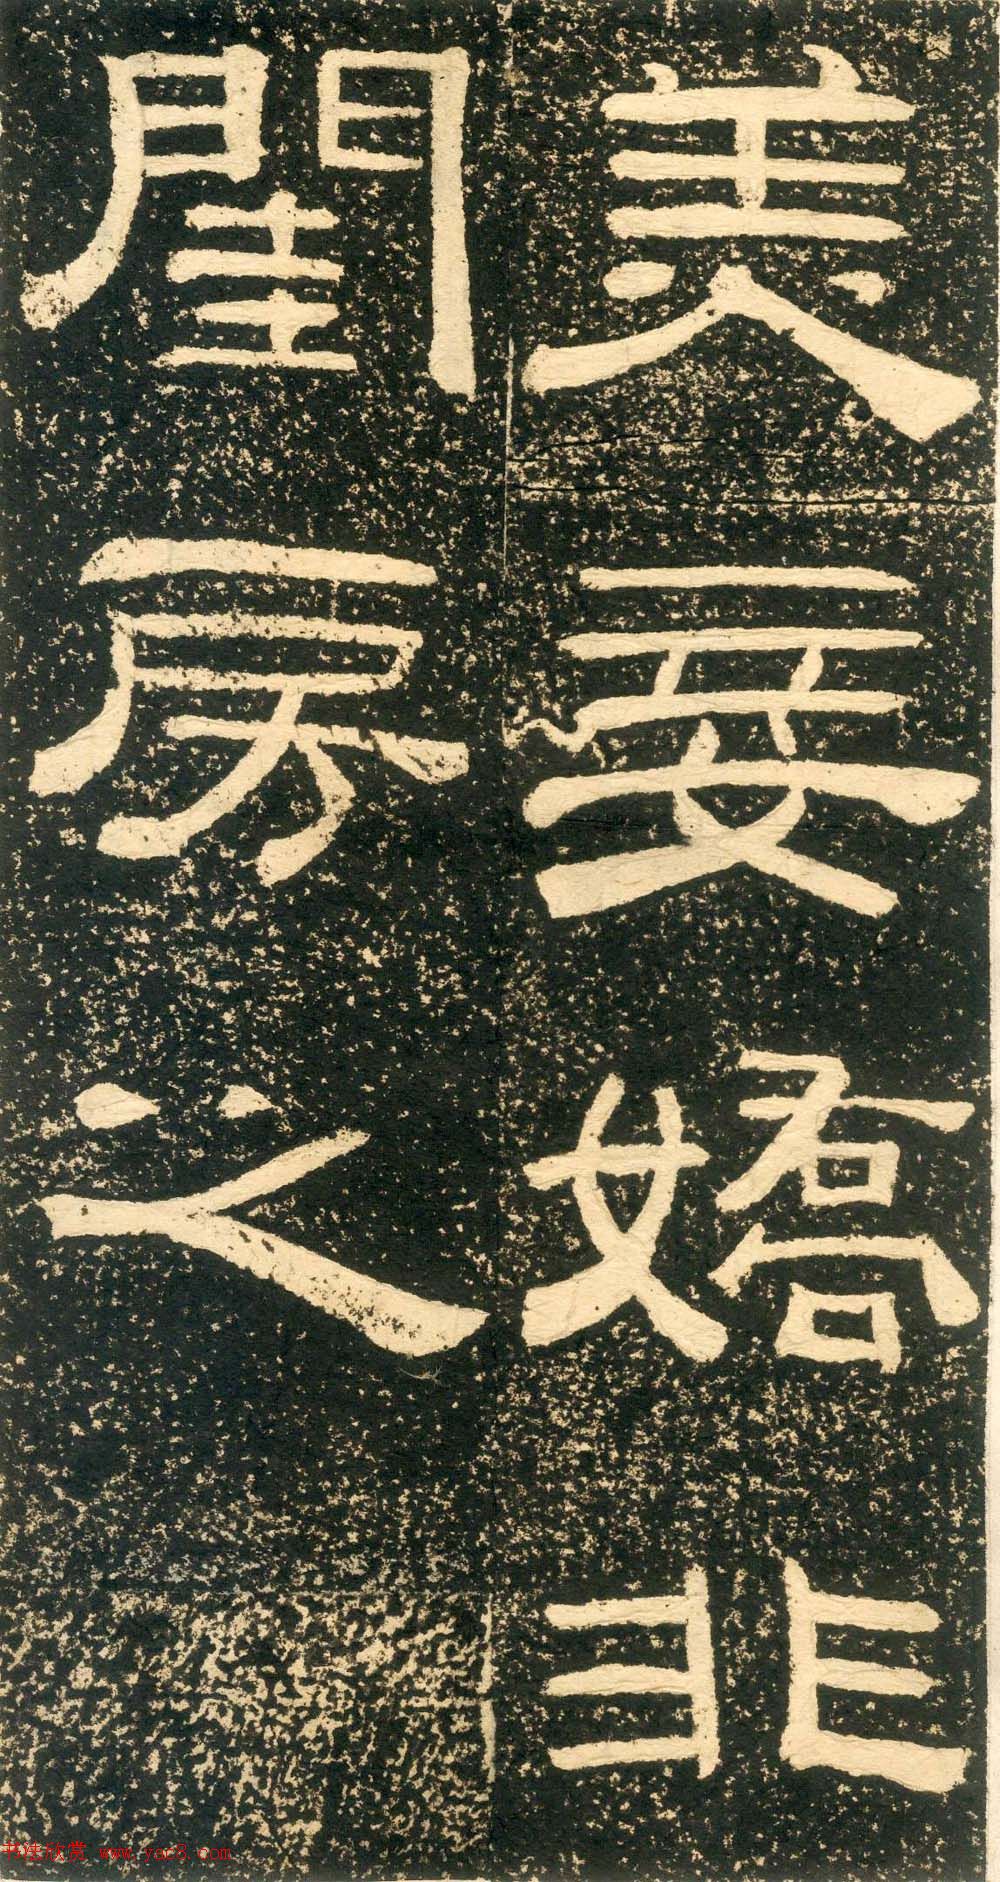 美要嬌非
閨房之
书法欣赏 www.yac8.com